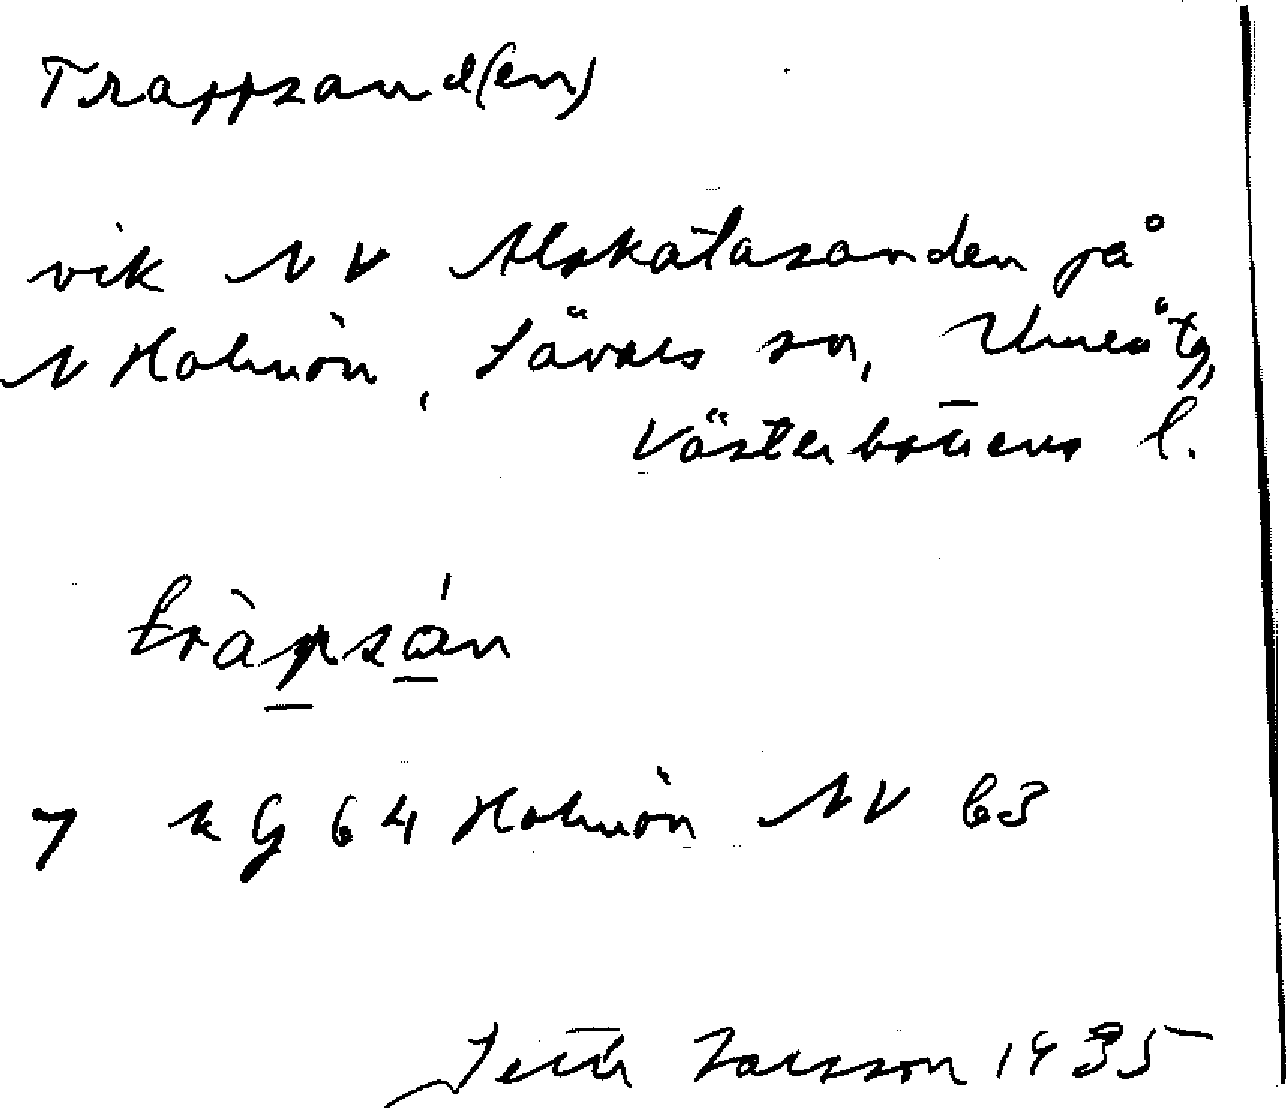 Trappsand(en)
vik NV Alskatasanden på
N Holmön, Sävars sn, Umeå tg,
Västerbottens l.
tràpsán
7 kG 64 Holmön NV 63
Larsson 1935